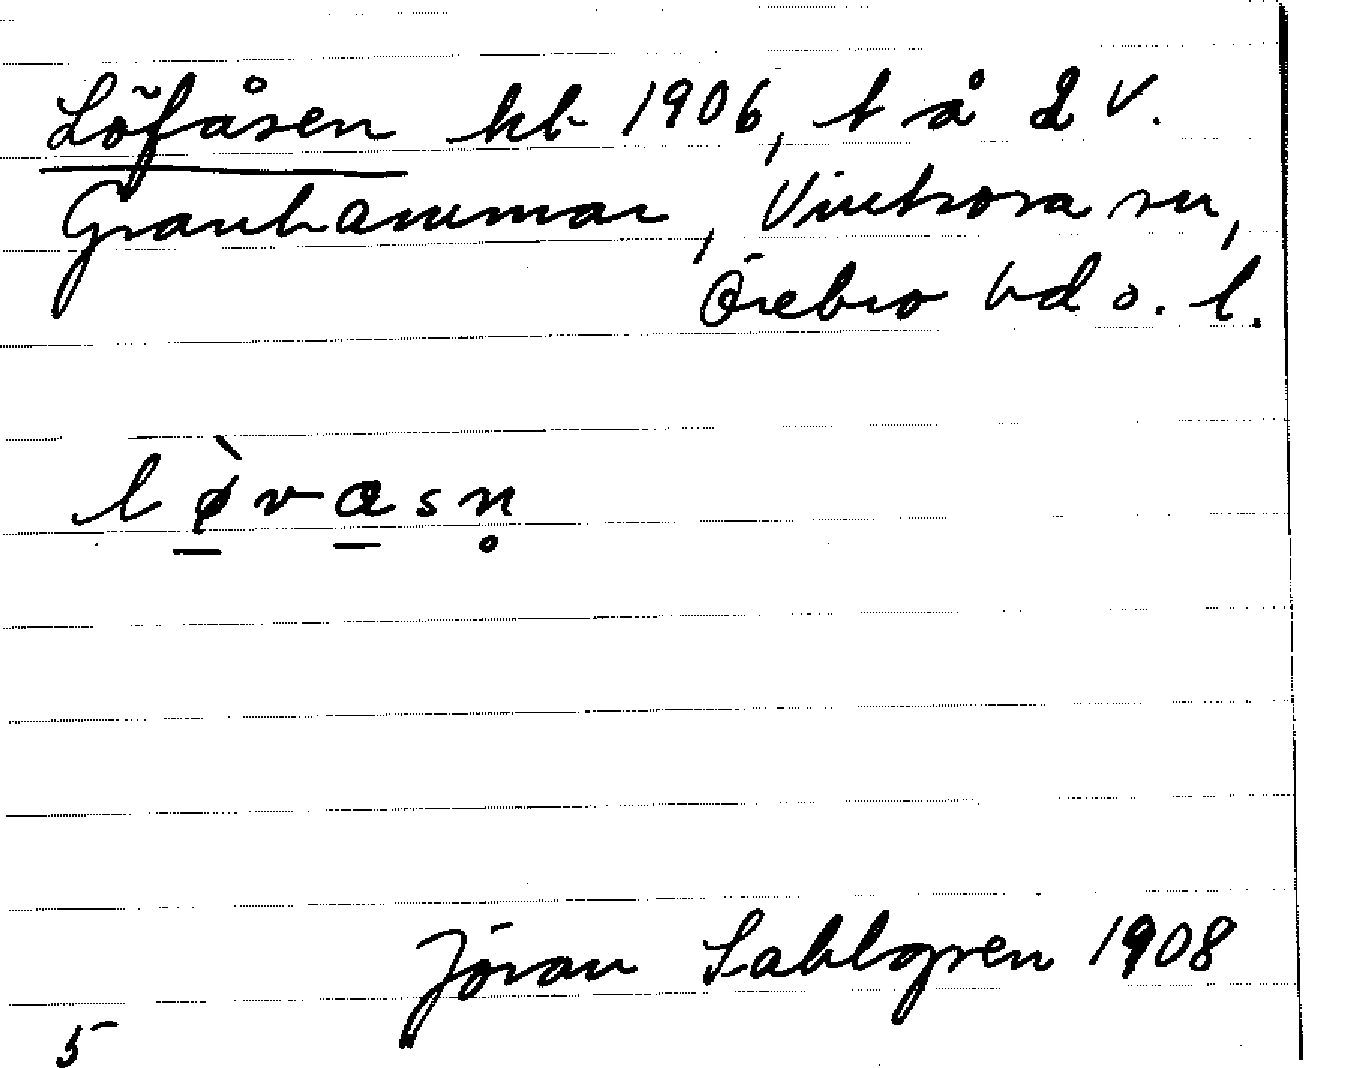 Löfåsen kb 1906, t å d V.
Granhammar, Vintrosa sn,
Örebro hd o. l.
lø̠̀va̠sn̥
Jöran Sahlgren 1908
5